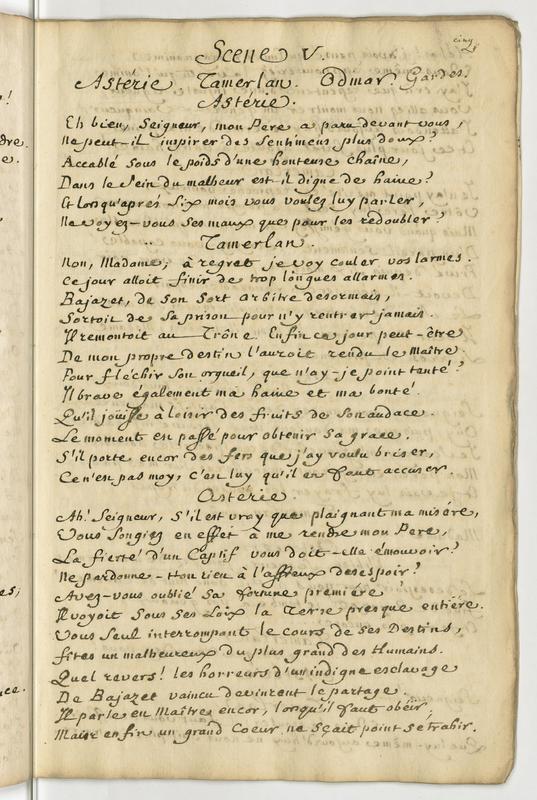 cinq
Scene V.
Astérie. Tamerlan. Odmar. Gardes.
Astérie.
Eh bien, Seigneur, mon Pere a paru devant vous,
Ne peut-il inspirer des Sentimens plus doux?
Accablé sous le poids d'une honteuse chaîne,
Dans le Sein du malheur est-il digne de haine?
Et lorsqu'aprés Six mois vous voulez luy parler,
Ne voyez-vous Ses maux que pour les redoubler?
Tamerlan.
Non, Madame, à regret je voy couler vos larmes.
Ce jour alloit finir de trop longues allarmes.
Bajazet, de Son Sort arbitre desormais,
Sortoit de Sa prison pour n'y rentrer jamais.
Il remontoit au Trône. Enfin ce jour peut-être
De mon propre destin l'auroit rendu le Maître.
Pour fléchir Son orgueil, que n'ay-je point tenté?
Il brave également ma haine et ma bonté.
Qu'il jouisse à loisir des fruits de Son audace.
Le moment est passé pour obtenir Sa grace.
S'il porte encor des fers que j'ay voulu briser,
Ce n'en pas moy, c'en luy qu'il en faut accuser.
Astérie.
Ah! Seigneur, S'il est vray que plaignant ma misére,
Vous Songiez en effet à me rendre mon Pere,
La fierté d'un Captif vous doit-elle émouvoir?
Ne pardonne-t-on rien à l'affreux desespoir?
Avez-vous oublié Sa fortune premiére
Il voyoit Sous Ses Loix la Terre presque entiére.
Vous Seul interrompant le cours de Ses Destins,
fites un malheureux du plus grand des Humains.
Quel revers! les horreurs d'un indigne esclavage
De Bajazet vaincu devinrent le partage.
Il parle en Maître encor, lorsqu'il faut obéir,
Mais enfin un grand Coeur ne sçait point se trahir.